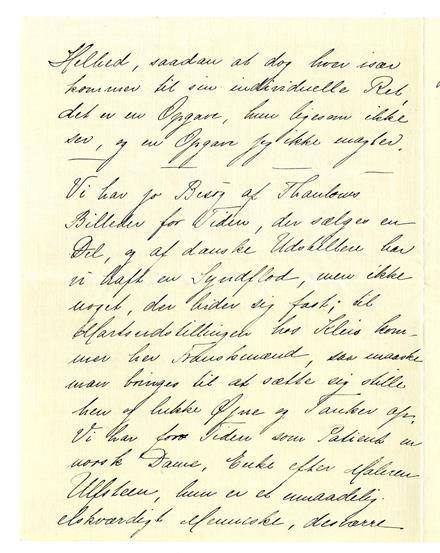 Helhed, saadan at dog hver især
kommer til sin individuelle Ret,
det er en Opgave, hun ligesom ikke
ser, og en Opgave jeg ikke magter.
Vi har jo Besøg af Thaulows
Billeder for Tiden, der sælges en
Del, og af danske Udstillere har
vi haft en Syndflod, men ikke
noget, der bider sig fast; til
Martsudstillingen hos Kleis kom-
mer her Franskmænd, saa maaske
man bringes til at sætte sig stille
hen og lukke Øjne og Tanker op.
Vi har for Tiden som Patient en
norsk Dame, Enke efter Maleren
Ulfsteen, hun er et umaadelig
elskværdigt Menneske, desværre